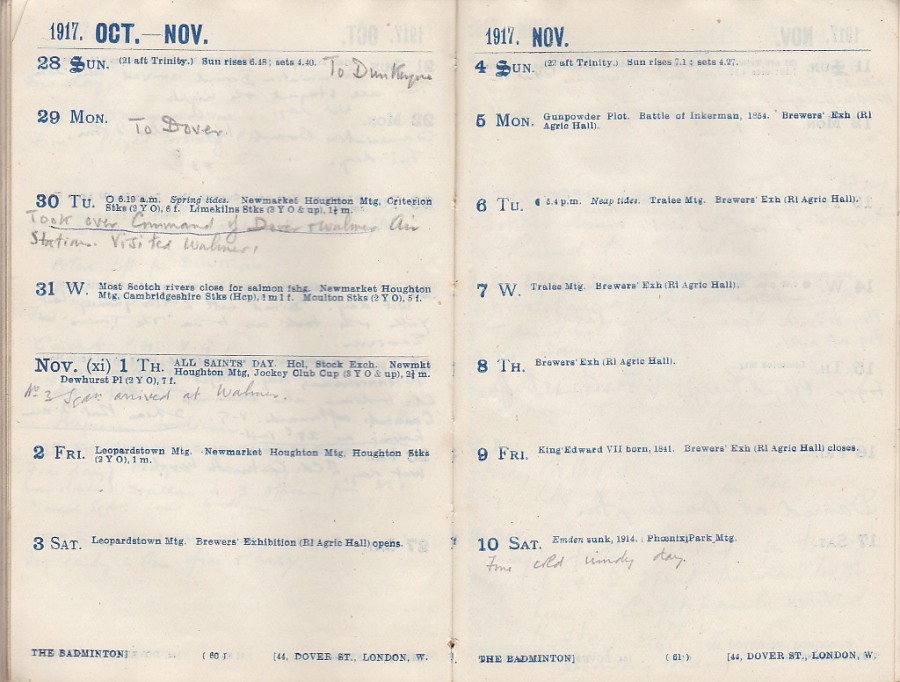 1917. OCT.—NOV.
28 SUN. (21 aft Trinity.) Sun rises 6.48; sets 4.40. To Dunkerque
29 MON.
To Dover
30 TU. O 6.19 a.m. Spring tides. Newmarket Houghton Mtg, Criterion
Stks (2 Y O), 6 f. Limekilns Stks (3 Y O & up), 1¼ m.
Took over Command of Dover & Walmer Air
Station. Visited Walmer.
31 W. Most Scotch rivers close for salmon fshg. Newmarket Houghton
Mtg, Cambridgeshire Stks (Hcp), 1 m 1 f. Moulton Stks (2 Y O), 5 f.
Nov. (xi) 1 TH. ALL SAINTS' DAY. Hol, Stock Exch. Newmkt
Houghton Mtg, Jockey Club Cup (3 Y O & up), 2¼ m.
Dewhurst Pl (2 Y O), 7 f.
No 3 Sqdn arrived at Walmer.
2 FRI. Leopardstown Mtg. Newmarket Houghton Mtg, Houghton Stks
(2 Y O), 1 m.
3 SAT. Leopardstown Mtg. Brewers' Exhibition (Rl Agric Hall) opens.
THE BADMINTON] (60) [44, DOVER ST., LONDON, W.
1917. NOV.
4 SUN. (22 aft Trinity.) Sun rises 7.1; sets 4.27.
5 MON. Gunpowder Plot. Battle of Inkerman, 1854. Brewers' Exh (Rl
Agric Hall).
6 TU. ☾ 5.4 p.m. Neap tides. Tralee Mtg. Brewers' Exh (Rl Agric Hall).
7 W. Tralee Mtg. Brewers' Exh (Rl Agric Hall).
8 TH. Brewers' Exh (Rl Agric Hall).
9 FRI. King Edward VII born, 1841. Brewers' Exh (Rl Agric Hall) closes.
10 SAT. Emden sunk, 1914. Phœnix Park Mtg.
Fine cold windy day.
THE BADMINTON] (61) [44, DOVER ST., LONDON, W.